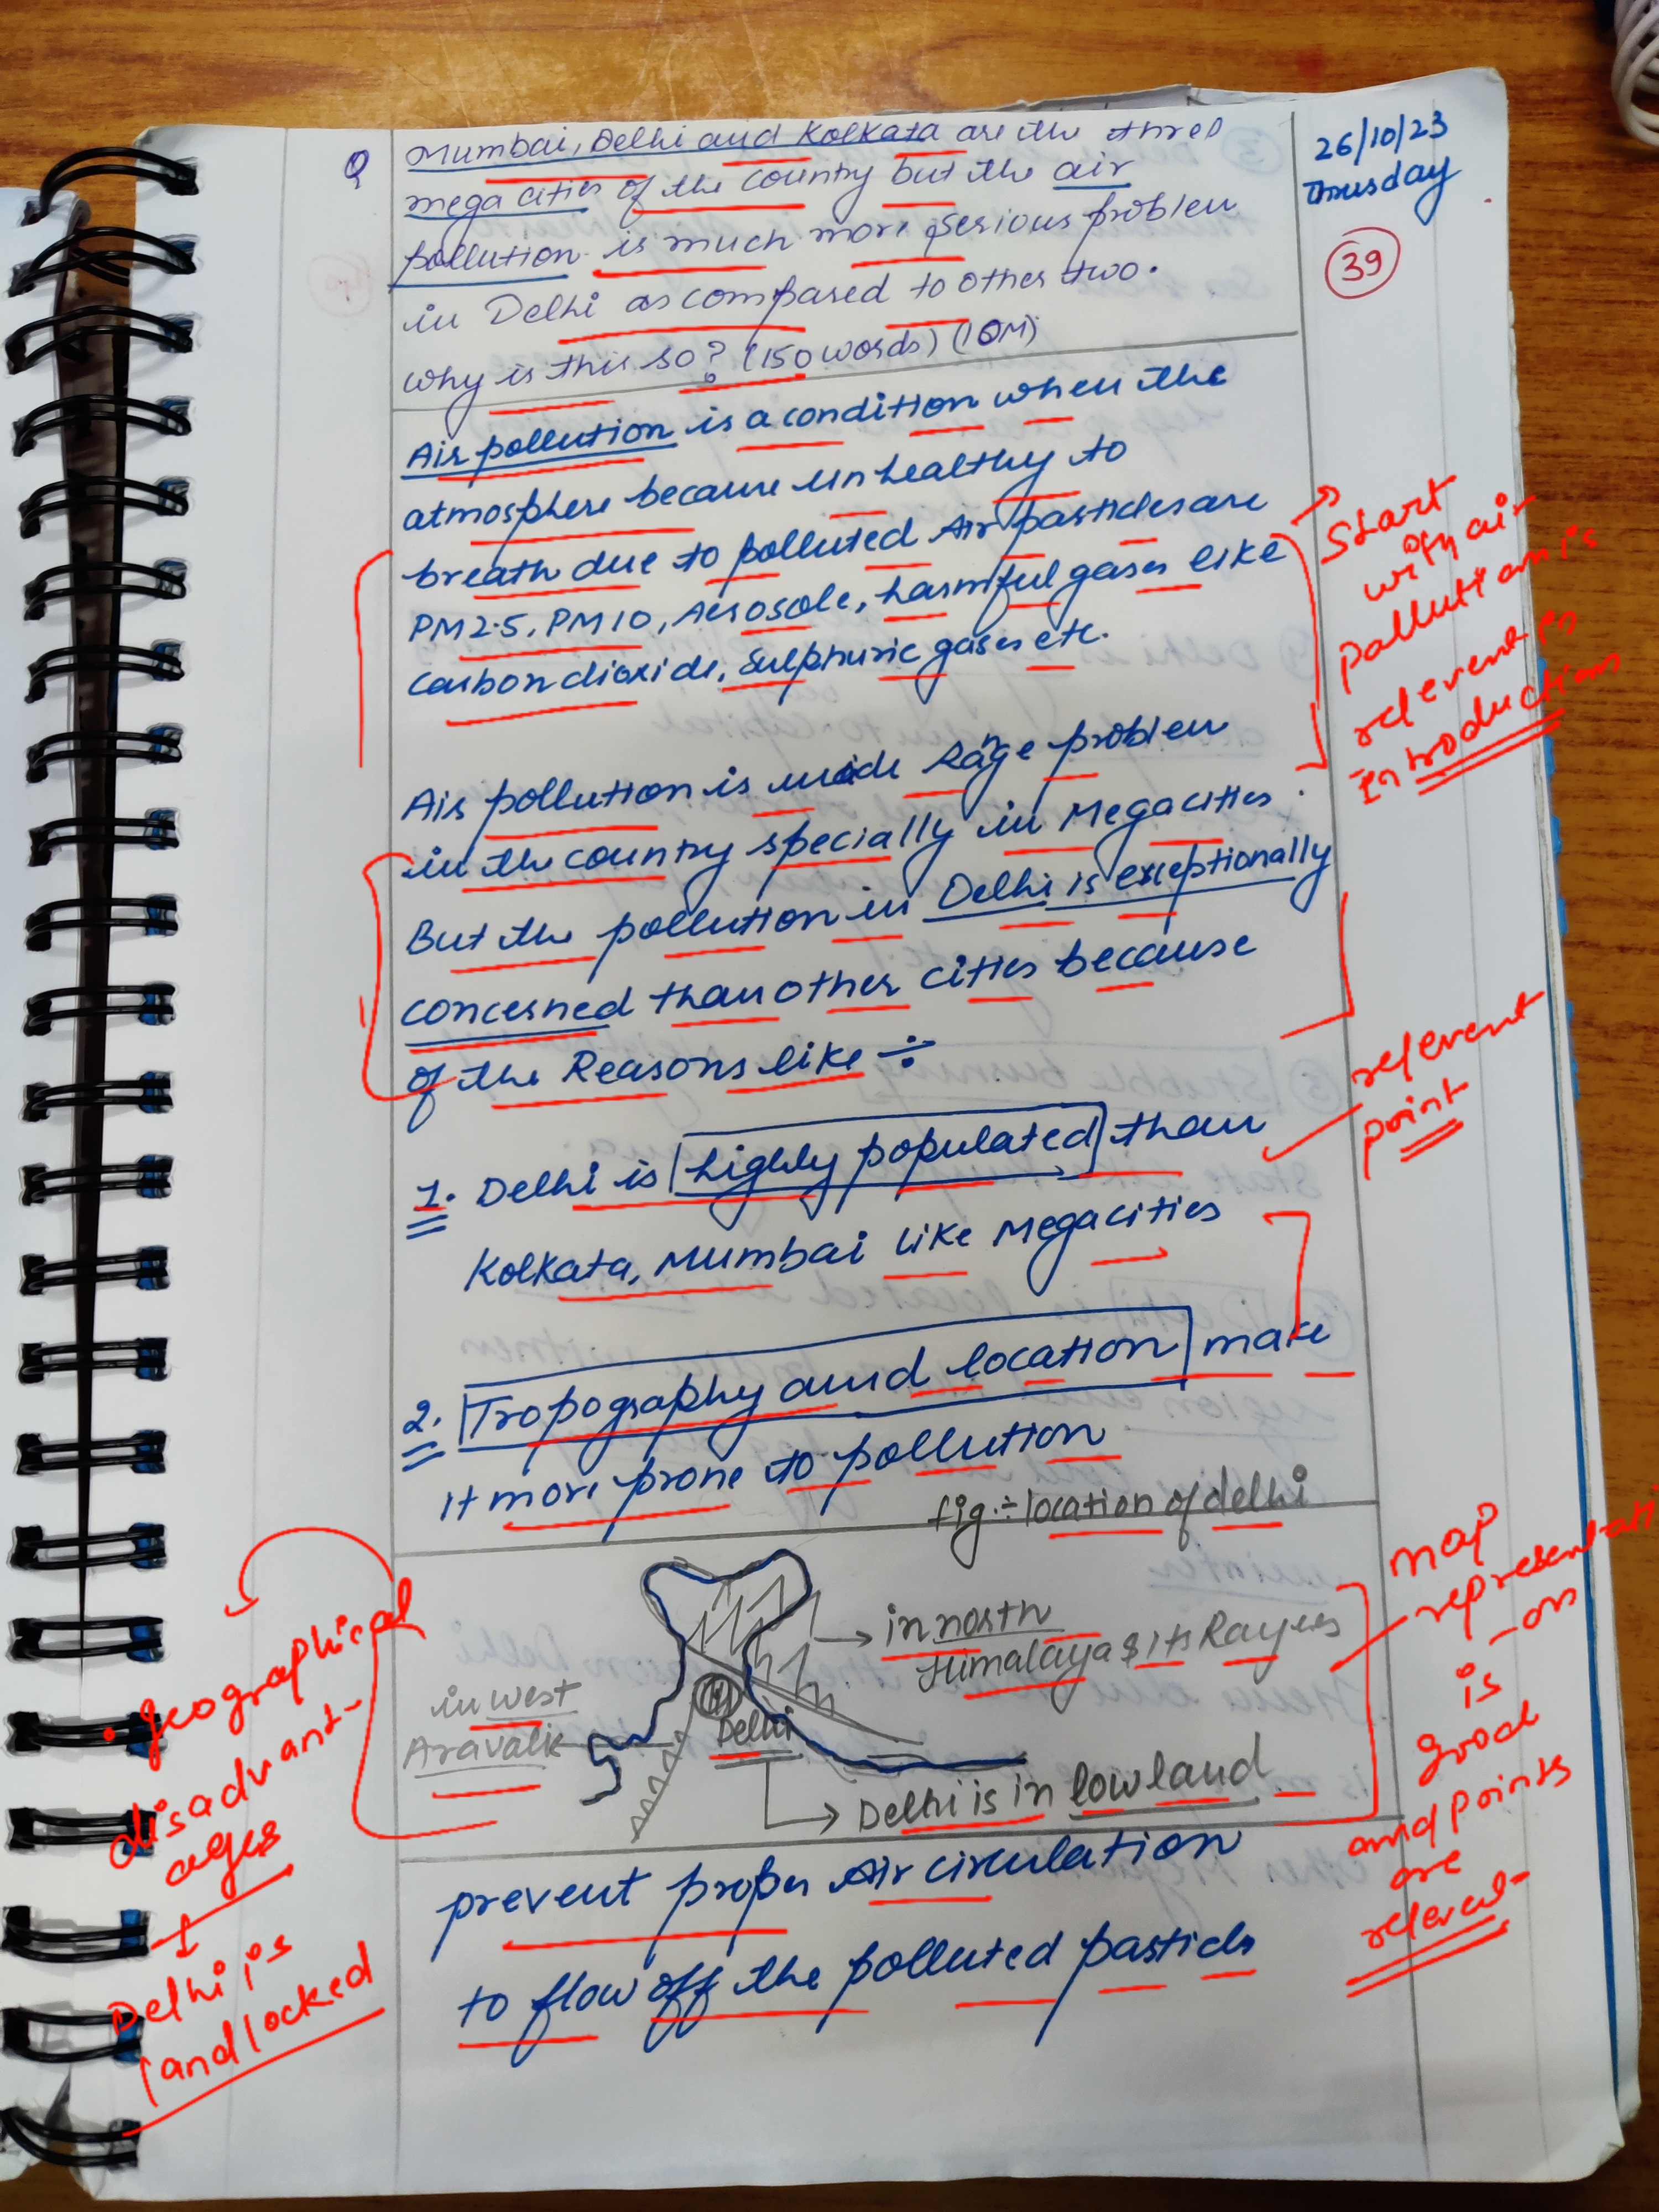 26/10/23
Thrusday
39
Q Mumbai, Delhi and Kolkata are the three
mega cities of the country but the air
pollution is much more serious problem
in Delhi as compared to other two.
Why is this so? (150 words) (10M)
Air pollution is a condition when the
atmosphere because unhealthy to
breath due to polluted Air pasticles are
PM2.5, PM10, Aerosole, harmful gases like
carbondioxide, Sulphuric gases etc.
Start
with air
pollution is
relevent in
Introduction
Air pollution is problem
in the country specially in Megacities
But the pollution in Delhi is exceptionally
concerned than other cities because
of the Reasons like ÷
1. Delhi is highly populated than
Kolkata, Mumbai like Megacities
relevent
point
2. Tropography and location make
it more prone to pollution
fig:- location of delhi
in north
Himalaya & its Ranges
in west
Aravalie
Delhi
Delhi is in low land
map
representati
-on
is
good
and points
are
relevent
• Geographical
disadvant-
ages
Delhi is
landlocked
prevent proper Air circulation
to flow off the polluted pasticls